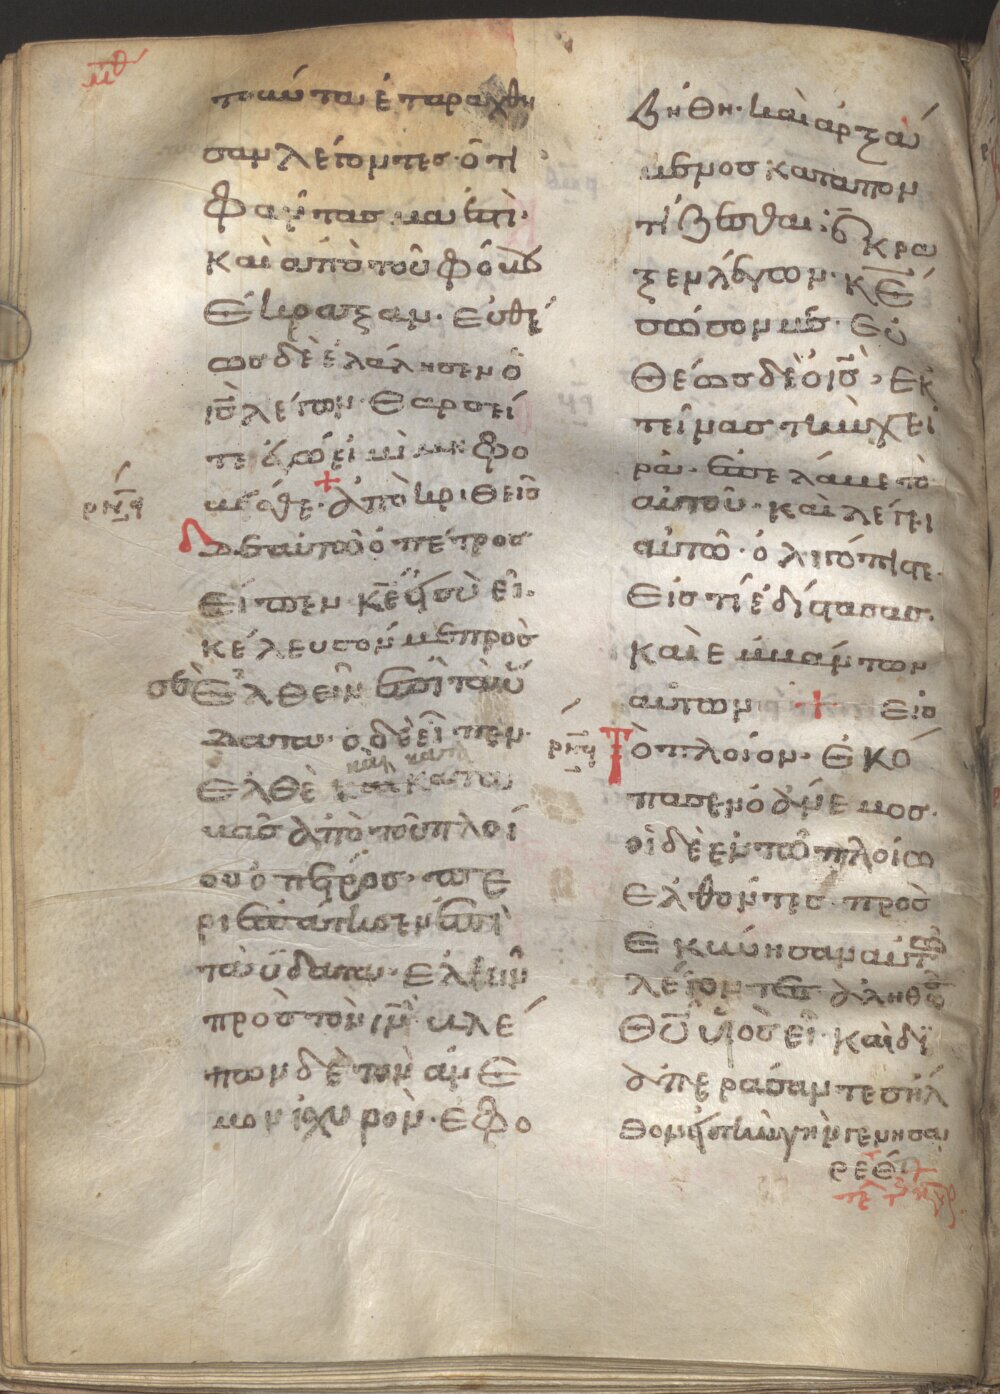 μθ
τοιαῦτα ἐταράχθη
σαν λέγοντες· ὅτι
φάντασμά ἐστι·
καὶ ἀπὸ τοῦ φόβου
ἔκραξαν· εὐθέ
ως δὲ ἐλάλησεν ὁ
ις λέγων· θαρσεί
τε ἐγώ εἰμι μὴ φο
βεῖσθε· + ἀποκριθεὶς
δὲ αὐτῶ ὁ πέτρος
εἶπεν κε εἰ σὺ εἶ·
κέλευσόν με πρὸς
σὲ ἐλθεῖν ἐπὶ τὰ ὕ
δατα· ὁ δὲ εἶπεν·
ἐλθὲ καὶ κατα
βὰς ἀπὸ τοῦ πλοί
ου ὁ πέτρος· πε
ριεπάτησεν ἐπὶ
τὰ ὕδατα· ἐλθεῖν
πρὸς τὸν ιν· βλέ
πων δὲ τὸν ἄνε
μον ἰσχυρὸν· ἐφο
βήθη· καὶ ἀρξά
μενος καταπον
τίζεσθαι· ἔκρα
ξεν λέγων· κε
σῶσόν με· εὐ
θέως δὲ ὁ ις· ἐκ
τείνας τὴν χεῖ
ρα· ἐπελάβετο
αὐτοῦ· καὶ λέγει
αὐτῶ· ὀλιγόπιστε·
εἰς τί ἐδίστασας·
καὶ ἐμβάντων
αὐτῶν + εἰς
τὸ πλοῖον· ἐκό
πασεν ὁ ἄνεμος·
οἱ δὲ ἐν τῶ πλοίω
ἐλθόντες προσ
εκύνησαν αὐτῶ
λέγοντες ἀληθῶς
θυ υἱὸς εἶ· καὶ δι
απεράσαντες ἦλ
θον εἰς τὴν γῆν γενησα
ρέθ·